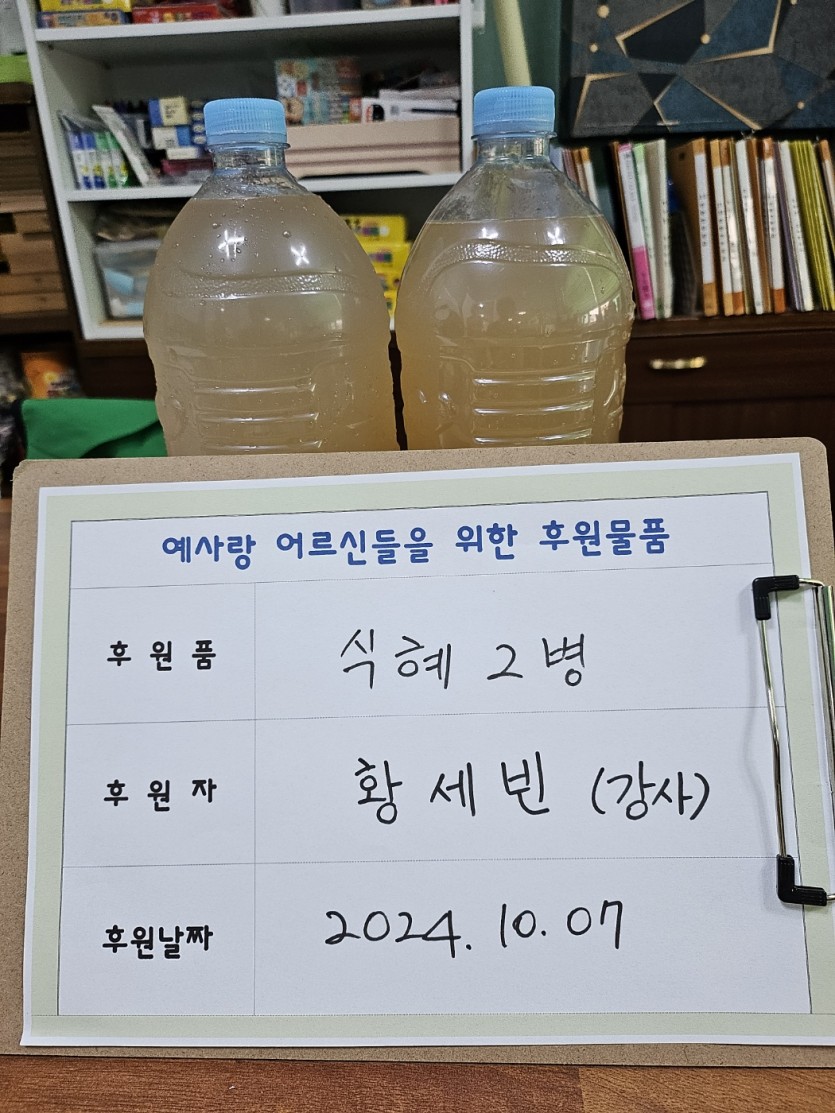 예사랑 어르신들을 위한 후원물품
후 원 품 식혜 2병
후 원 자 황세빈 (강사)
후원날짜 2024. 10. 07